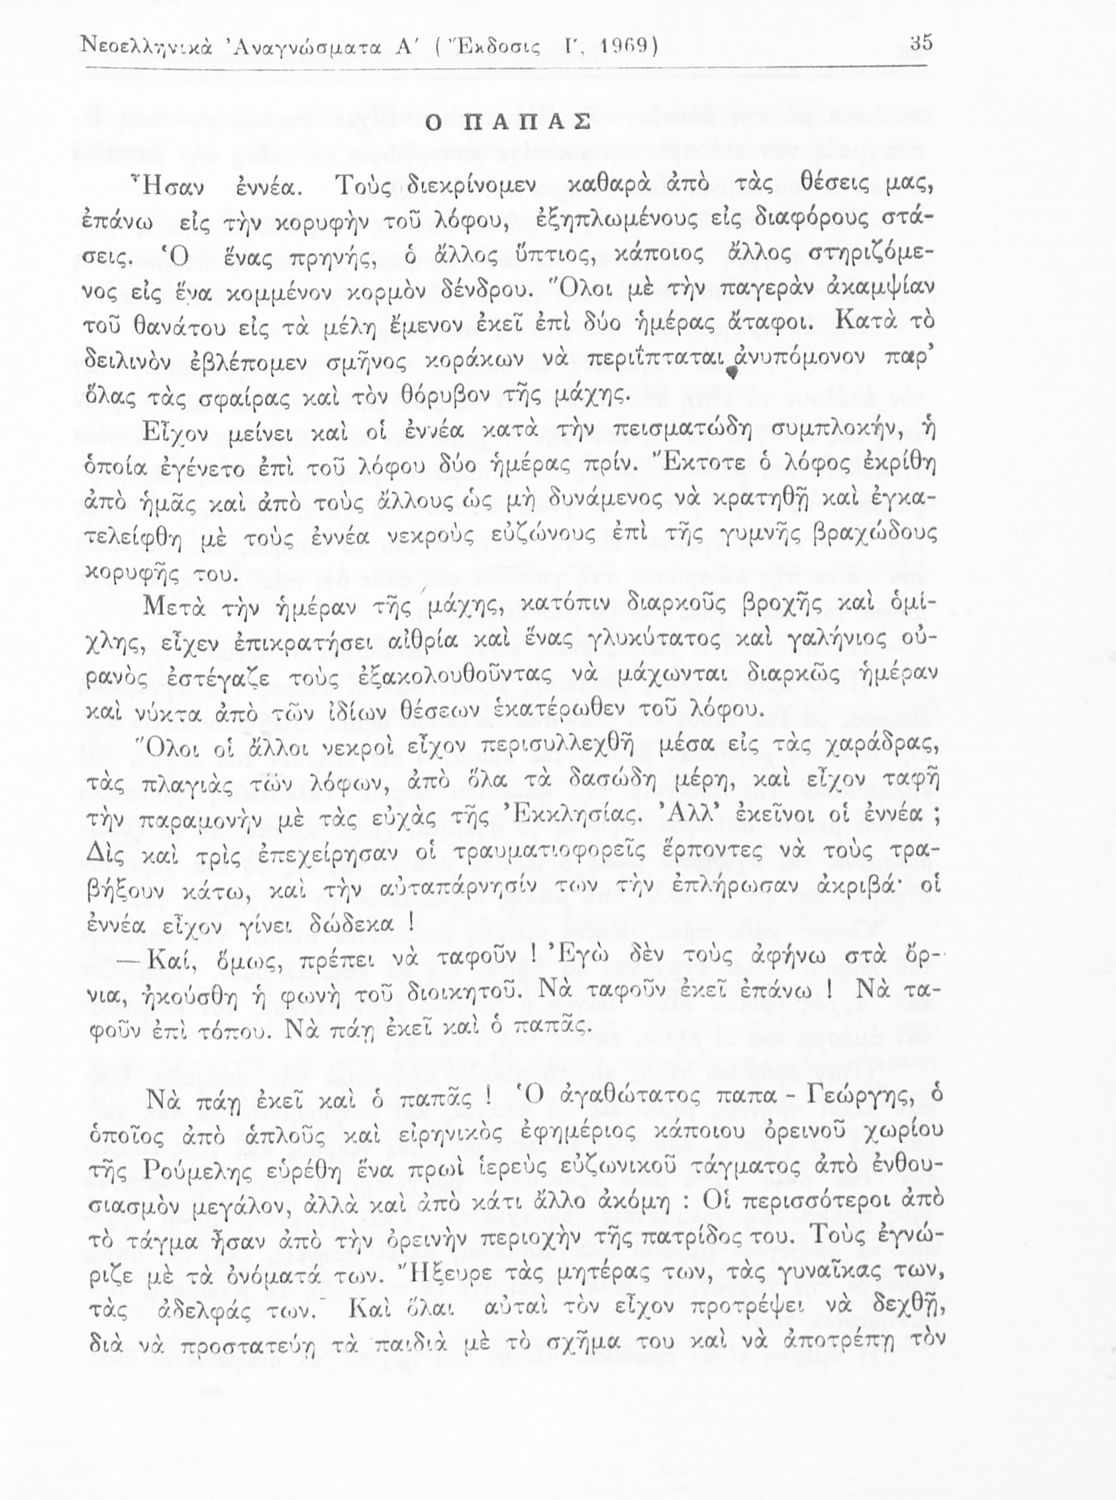 Νεοελληνικὰ Ἀναγνώσματα Α΄ (Ἔκδοσις Γ΄, 1969) 35
Ο ΠΑΠΑΣ
Ἦσαν ἐννέα. Τοὺς διεκρίνομεν καθαρὰ ἀπὸ τὰς θέσεις μας,
ἐπάνω εἰς τὴν κορυφὴν τοῦ λόφου, ἐξηπλωμένους εἰς διαφόρους στά-
σεις. Ὁ ἕνας πρηνής, ὁ ἄλλος ὕπτιος, κάποιος ἄλλος στηριζόμε-
νος εἰς ἕνα κομμένον κορμὸν δένδρου. Ὅλοι μὲ τὴν παγερὰν ἀκαμψίαν
τοῦ θανάτου εἰς τὰ μέλη ἔμενον ἐκεῖ ἐπὶ δύο ἡμέρας ἄταφοι. Κατὰ τὸ
δειλινὸν ἐβλέπομεν σμῆνος κοράκων νὰ περιΐπταται ἀνυπόμονον παρ’
ὅλας τὰς σφαίρας καὶ τὸν θόρυβον τῆς μάχης.
Εἶχον μείνει καὶ οἱ ἐννέα κατὰ τὴν πεισματώδη συμπλοκήν, ἡ
ὁποία ἐγένετο ἐπὶ τοῦ λόφου δύο ἡμέρας πρίν. Ἔκτοτε ὁ λόφος ἐκρίθη
ἀπὸ ἡμᾶς καὶ ἀπὸ τοὺς ἄλλους ὡς μὴ δυνάμενος νὰ κρατηθῇ καὶ ἐγκα-
τελείφθη μὲ τοὺς ἐννέα νεκροὺς εὐζώνους ἐπὶ τῆς γυμνῆς βραχώδους
κορυφῆς του.
Μετὰ τὴν ἡμέραν τῆς μάχης, κατόπιν διαρκοῦς βροχῆς καὶ ὁμί-
χλης, εἶχεν ἐπικρατήσει αἰθρία καὶ ἕνας γλυκύτατος καὶ γαλήνιος οὐ-
ρανὸς ἐστέγαζε τοὺς ἐξακολουθοῦντας νὰ μάχωνται διαρκῶς ἡμέραν
καὶ νύκτα ἀπὸ τῶν ἰδίων θέσεων ἑκατέρωθεν τοῦ λόφου.
Ὅλοι οἱ ἄλλοι νεκροὶ εἶχον περισυλλεχθῆ μέσα εἰς τὰς χαράδρας,
τὰς πλαγιὰς τῶν λόφων, ἀπὸ ὅλα τὰ δασώδη μέρη, καὶ εἶχον ταφῆ
τὴν παραμονὴν μὲ τὰς εὐχὰς τῆς Ἐκκλησίας. Ἀλλ’ ἐκεῖνοι οἱ ἐννέα ;
Δὶς καὶ τρὶς ἐπεχείρησαν οἱ τραυματιοφορεῖς ἕρποντες νὰ τοὺς τρα-
βήξουν κάτω, καὶ τὴν αὐταπάρνησίν των τὴν ἐπλήρωσαν ἀκριβά· οἱ
ἐννέα εἶχον γίνει δώδεκα !
— Καί, ὅμως, πρέπει νὰ ταφοῦν ! Ἐγὼ δὲν τοὺς ἀφήνω στὰ ὄρ-
νια, ἠκούσθη ἡ φωνὴ τοῦ διοικητοῦ. Νὰ ταφοῦν ἐκεῖ ἐπάνω ! Νὰ τα-
φοῦν ἐπὶ τόπου. Νὰ πάῃ ἐκεῖ καὶ ὁ παπᾶς.
Νὰ πάῃ ἐκεῖ καὶ ὁ παπᾶς ! Ὁ ἀγαθώτατος παπα - Γεώργης, ὁ
ὁποῖος ἀπὸ ἁπλοῦς καὶ εἰρηνικὸς ἐφημέριος κάποιου ὀρεινοῦ χωρίου
τῆς Ρούμελης εὑρέθη ἕνα πρωὶ ἱερεὺς εὐζωνικοῦ τάγματος ἀπὸ ἐνθου-
σιασμὸν μεγάλον, ἀλλὰ καὶ ἀπὸ κάτι ἄλλο ἀκόμη : Οἱ περισσότεροι ἀπὸ
τὸ τάγμα ἦσαν ἀπὸ τὴν ὀρεινὴν περιοχὴν τῆς πατρίδος του. Τοὺς ἐγνώ-
ριζε μὲ τὰ ὀνόματά των. Ἤξευρε τὰς μητέρας των, τὰς γυναῖκας των,
τὰς ἀδελφάς των. Καὶ ὅλαι αὐταὶ τὸν εἶχον προτρέψει νὰ δεχθῇ,
διὰ νὰ προστατεύῃ τὰ παιδιὰ μὲ τὸ σχῆμα του καὶ νὰ ἀποτρέπῃ τὸν